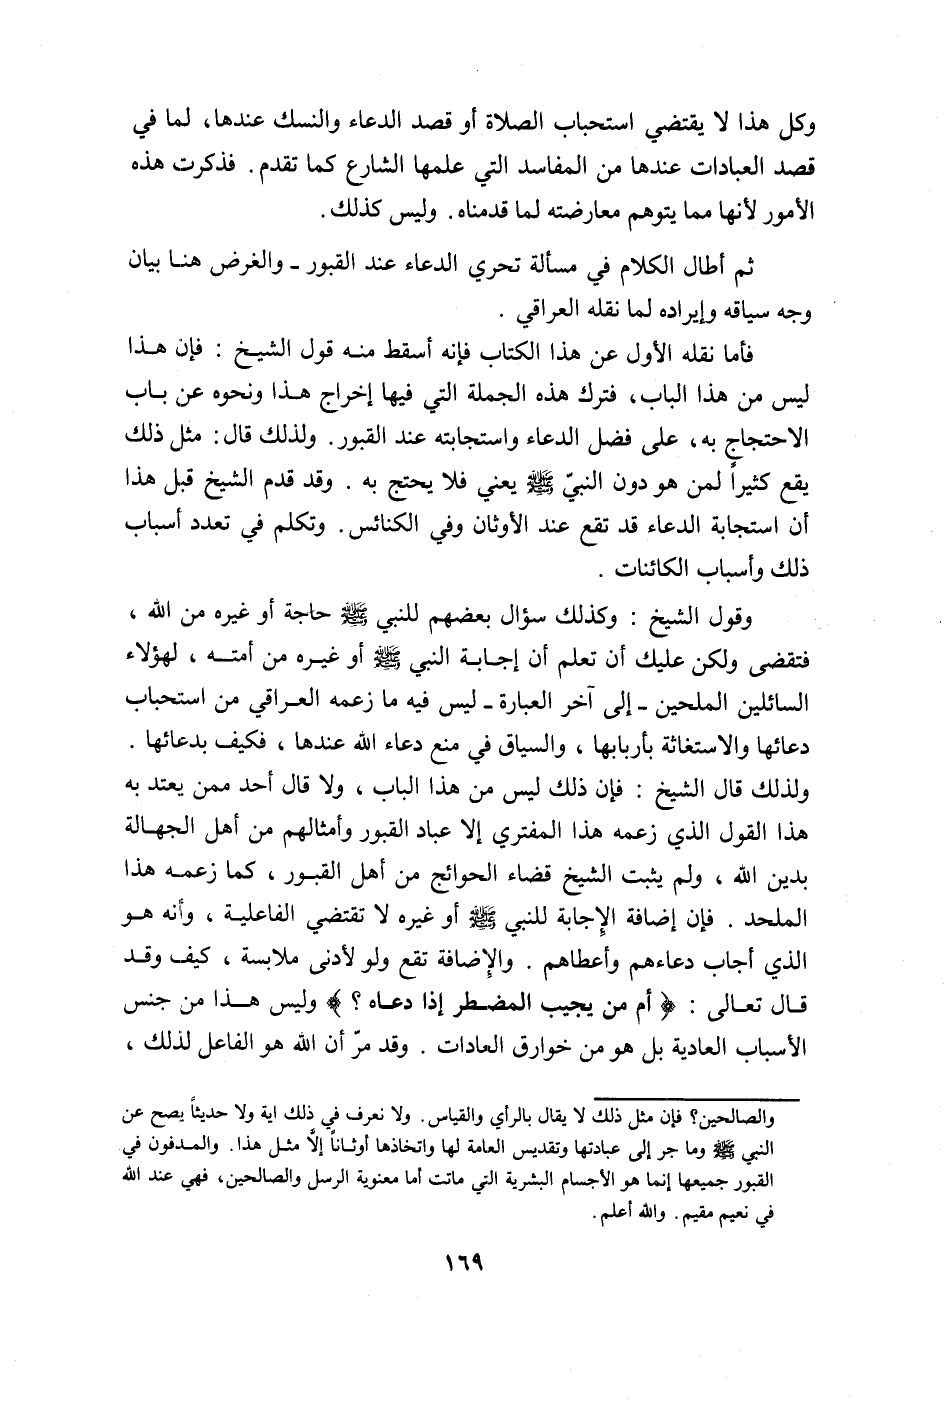 وكل هذا لا يقتضي استحباب الصلاة أو قصد الدعاء والنسك عندها، لما في
قصد العبادات عندها من المفاسد التي علمها الشارع كما تقدم. فذكرت هذه
الأمور لأنها مما يتوهم معارضته لما قدمناه. وليس كذلك.
ثم أطال الكلام في مسألة تحري الدعاء عند القبور - والغرض هنا بيان
وجه سياقه وإيراده لما نقله العراقي .
فأما نقله الأول عن هذا الكتاب فإنه أسقط منه قول الشيخ : فإن هذا
ليس من هذا الباب، فترك هذه الجملة التي فيها إخراج هذا ونحوه عن باب
الاحتجاج به، على فضل الدعاء واستجابته عند القبور. ولذلك قال: مثل ذلك
يقع كثيراً لمن هو دون النبيّ ﷺ يعني فلا يحتج به . وقد قدم الشيخ قبل هذا
أن استجابة الدعاء قد تقع عند الأوثان وفي الكنائس. وتكلم في تعدد أسباب
ذلك وأسباب الكائنات .
وقول الشيخ : وكذلك سؤال بعضهم للنبي ﷺ حاجة أو غيره من الله ،
فتقضى ولكن عليك أن تعلم أن إجابة النبي ﷺ أو غيره من أمته ، لهؤلاء
السائلين الملحين - إلى آخر العبارة - ليس فيه ما زعمه العراقي من استحباب
دعائها والاستغاثة بأربابها ، والسياق في منع دعاء الله عندها ، فكيف بدعائها .
ولذلك قال الشيخ : فإن ذلك ليس من هذا الباب ، ولا قال أحد ممن يعتد به
هذا القول الذي زعمه هذا المفتري إلا عباد القبور وأمثالهم من أهل الجهالة
بدين الله ، ولم يثبت الشيخ قضاء الحوائج من أهل القبور ، كما زعمه هذا
الملحد . فإن إضافة الإجابة للنبي ﷺ أو غيره لا تقتضي الفاعلية ، وأنه هو
الذي أجاب دعاءهم وأعطاهم . والإضافة تقع ولو لأدنى ملابسة ، كيف وقد
قال تعالى : ﴿ أم من يجيب المضطر إذا دعاه ؟ ﴾ وليس هذا من جنس
الأسباب العادية بل هو من خوارق العادات . وقد مرّ أن الله هو الفاعل لذلك ،
والصالحين؟ فإن مثل ذلك لا يقال بالرأي والقياس. ولا نعرف في ذلك اية ولا حديثاً يصح عن
النبي ﷺ وما جر إلى عبادتها وتقديس العامة لها واتخاذها أوثاناً إلَّا مثل هذا. والمدفون في
القبور جميعها إنما هو الأجسام البشرية التي ماتت أما معنوية الرسل والصالحين، فهي عند الله
في نعيم مقيم. والله أعلم.
١٦٩